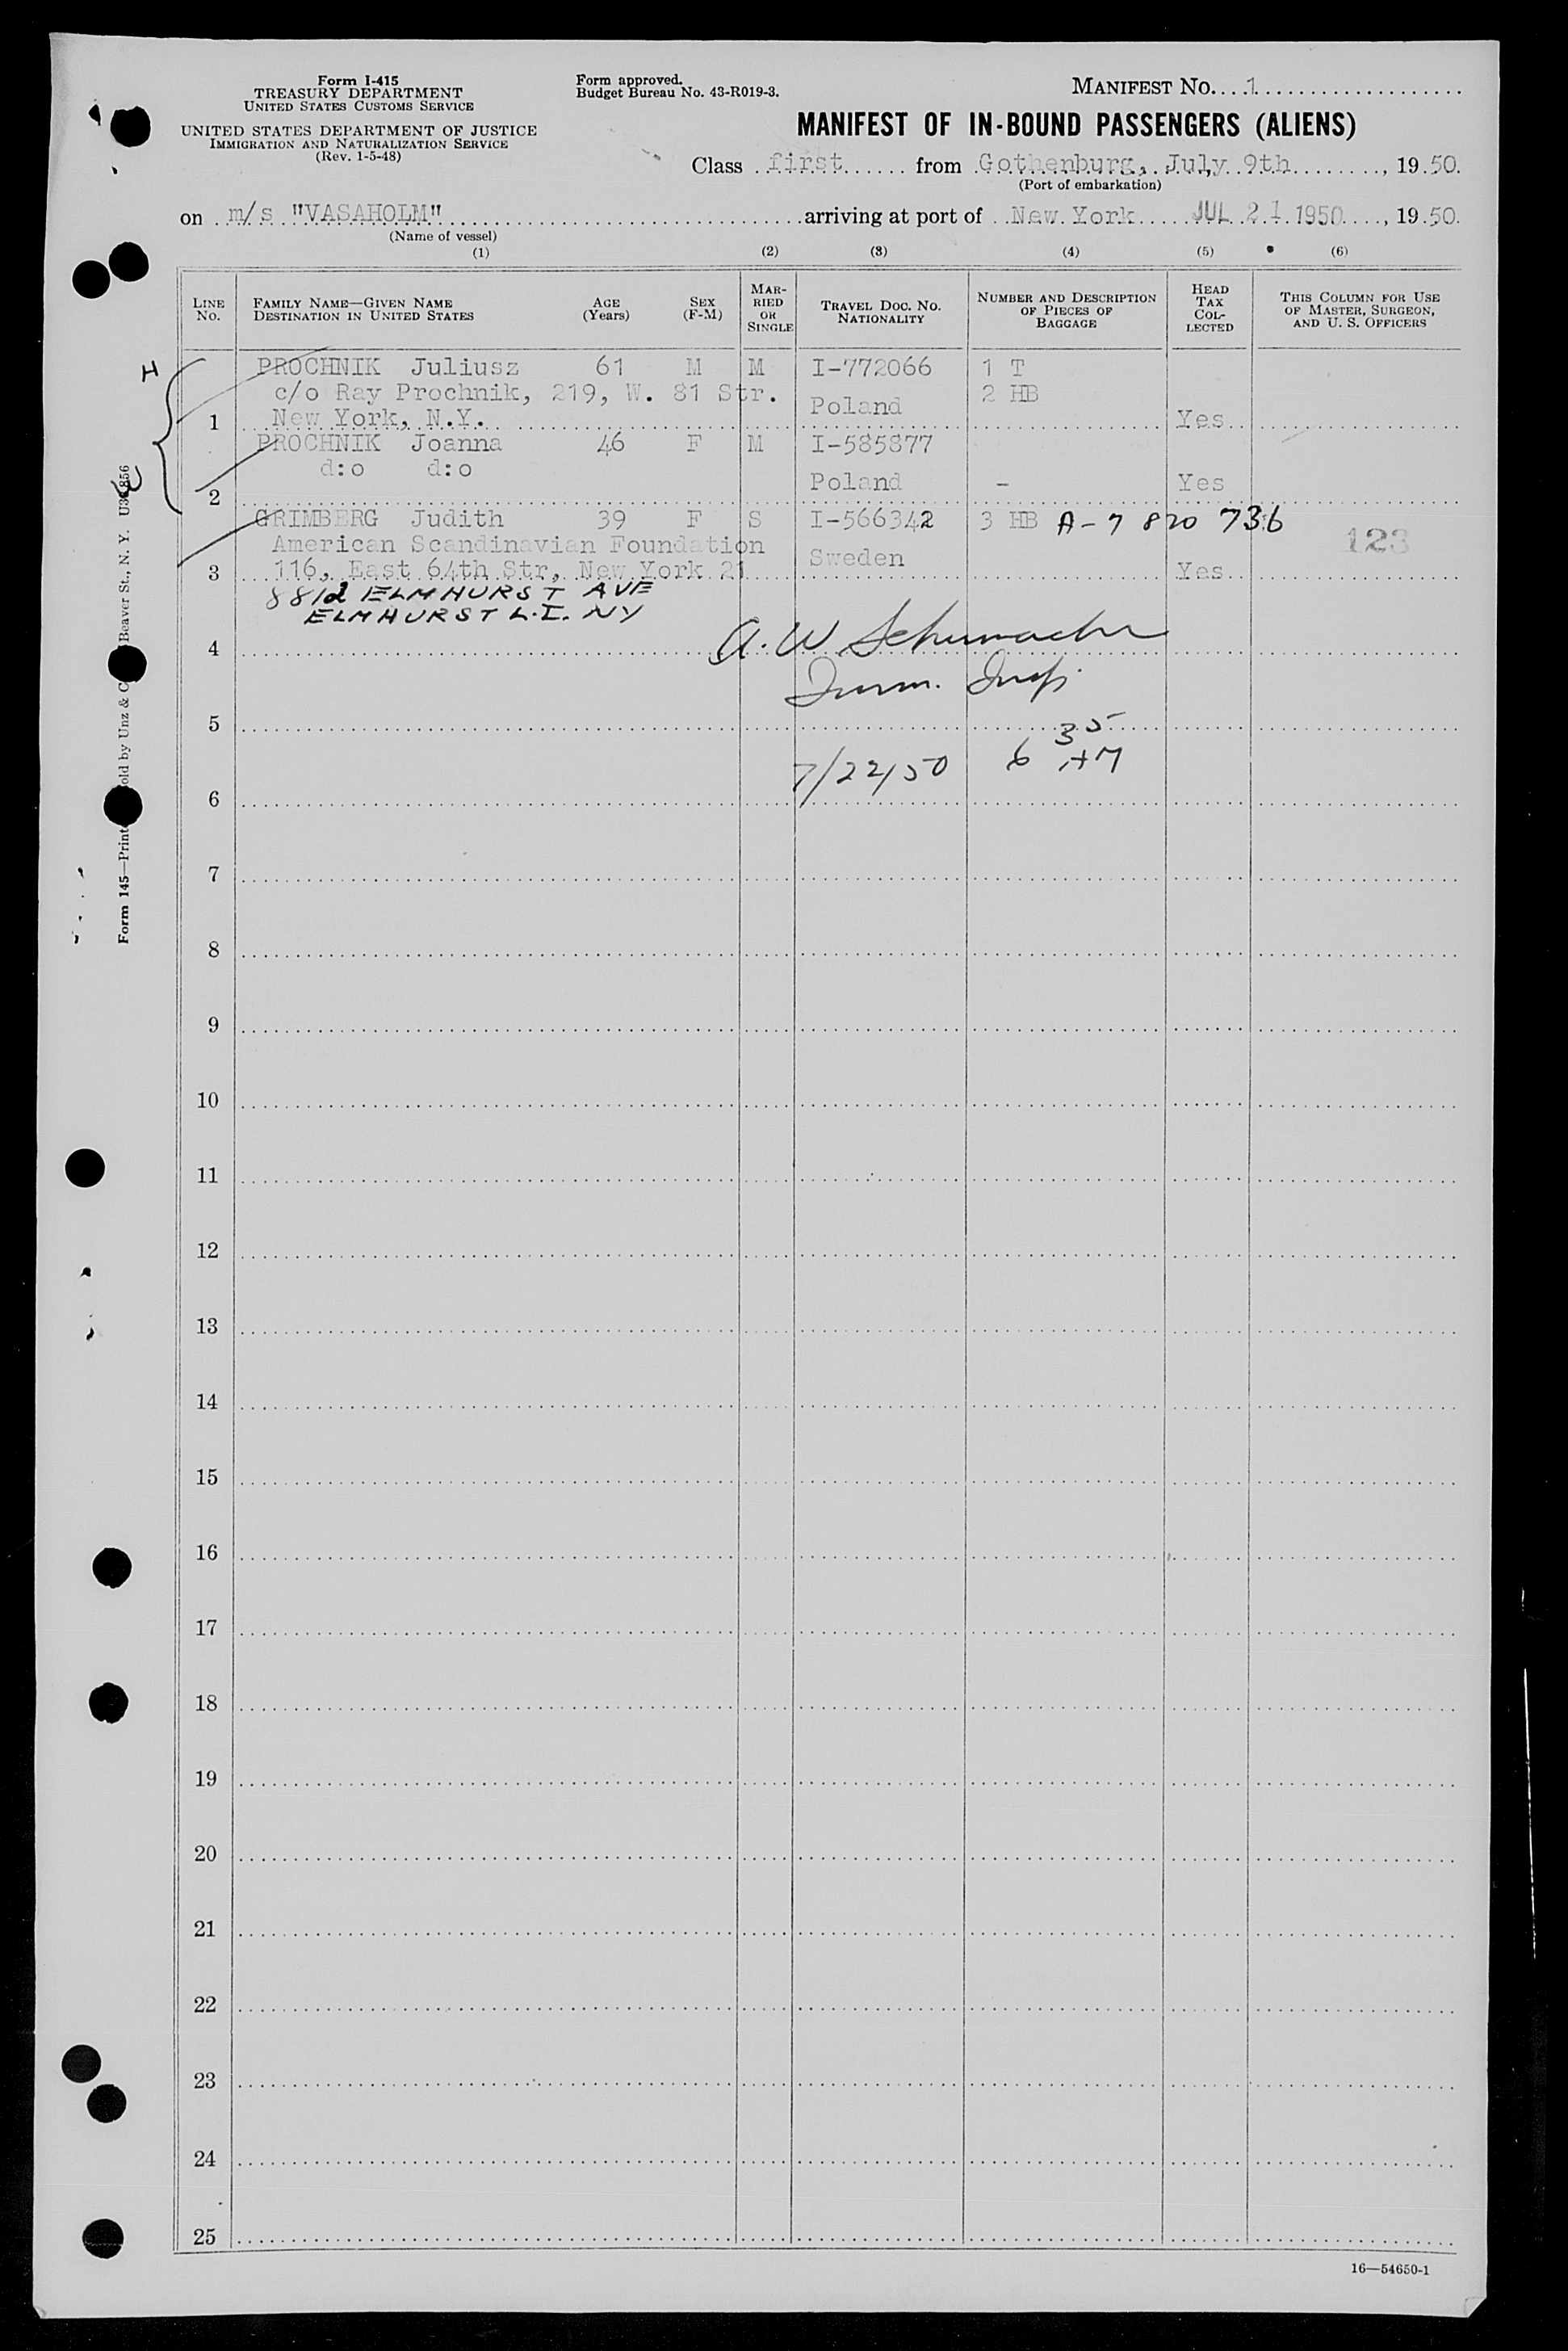 Form I-415
TREASURY DEPARTMENT
UNITED STATES CUSTOMS SERVICE
UNITED STATES DEPARTMENT OF JUSTICE
IMMIGRATION AND NATURALIZATION SERVICE
(Rev. 1-5-48)
Form approved.
Budget Bureau No. 43-R019-3.
MANIFEST NO. 1
MANIFEST OF IN-BOUND PASSENGERS (ALIENS)
Class first from Gothenburg, July 9th, 1950.
(Port of embarkation)
on m/s "VASAHOLM" arriving at port of New York JUL 21 1950, 1950.
(Name of vessel)
(1) (2) (3) (4) (5) (6)
LINE NO.
FAMILY NAME—GIVEN NAME
DESTINATION IN UNITED STATES
AGE
(Years)
SEX
(F-M)
MAR-
RIED
OR
SINGLE
TRAVEL DOC. NO.
NATIONALITY
NUMBER AND DESCRIPTION
OF PIECES OF
BAGGAGE
HEAD
TAX
COL-
LECTED
THIS COLUMN FOR USE
OF MASTER, SURGEON,
AND U. S. OFFICERS
H
PROCHNIK Juliusz 61 M M I-772066 1 T
c/o Ray Prochnik, 219, W. 81 Str. 2 HB
Poland
1 New York, N.Y. Yes
PROCHNIK Joanna 46 F M I-585877
d:o d:o
2 Poland - Yes
GRIMBERG Judith 39 F S I-566342 3 HB A-7 820 736
American Scandinavian Foundation 123
Sweden
3 116, East 64th Str, New York 21 Yes
8812 ELMHURST AVE
ELMHURST L.I. NY
4 A. W Schumacher
Imm. Insp.
5
35
7/22/50 6 AM
6
7
8
9
10
11
12
13
14
15
16
17
18
19
20
21
22
23
24
25
16—54650-1
Form 145—Print old by Unz & C Beaver St., N. Y.